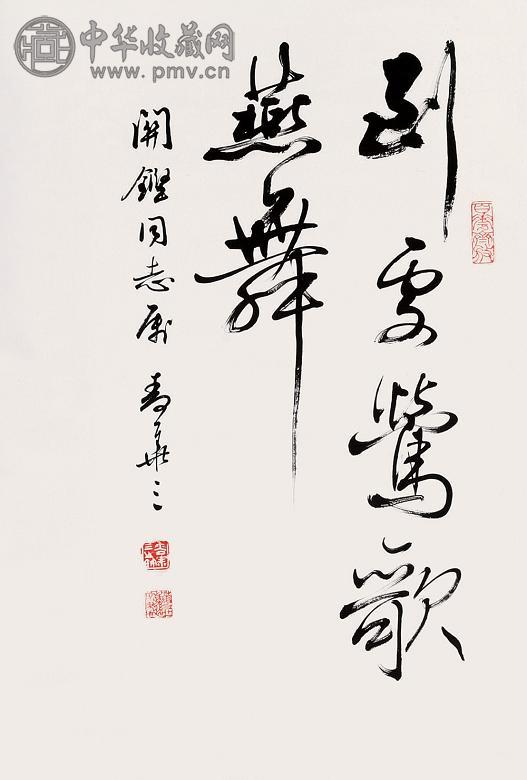 中华收藏网
www.pmv.cn
到处莺歌
燕舞
開鑑同志属 寿華三